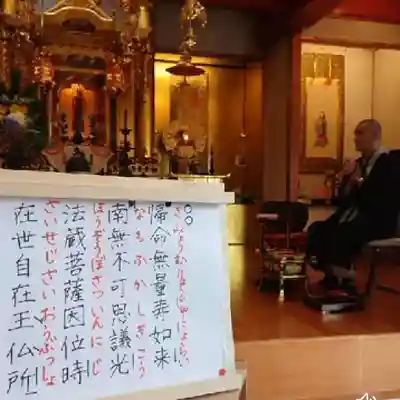 ○○
きみょうむりょうじゅにょらい
帰命無量寿如来
なもふかしぎこう
南無不可思議光
ほうぞうぼさついんにじ
法蔵菩薩因位時
ざいせじざいおうぶっしょ
在世自在王仏所